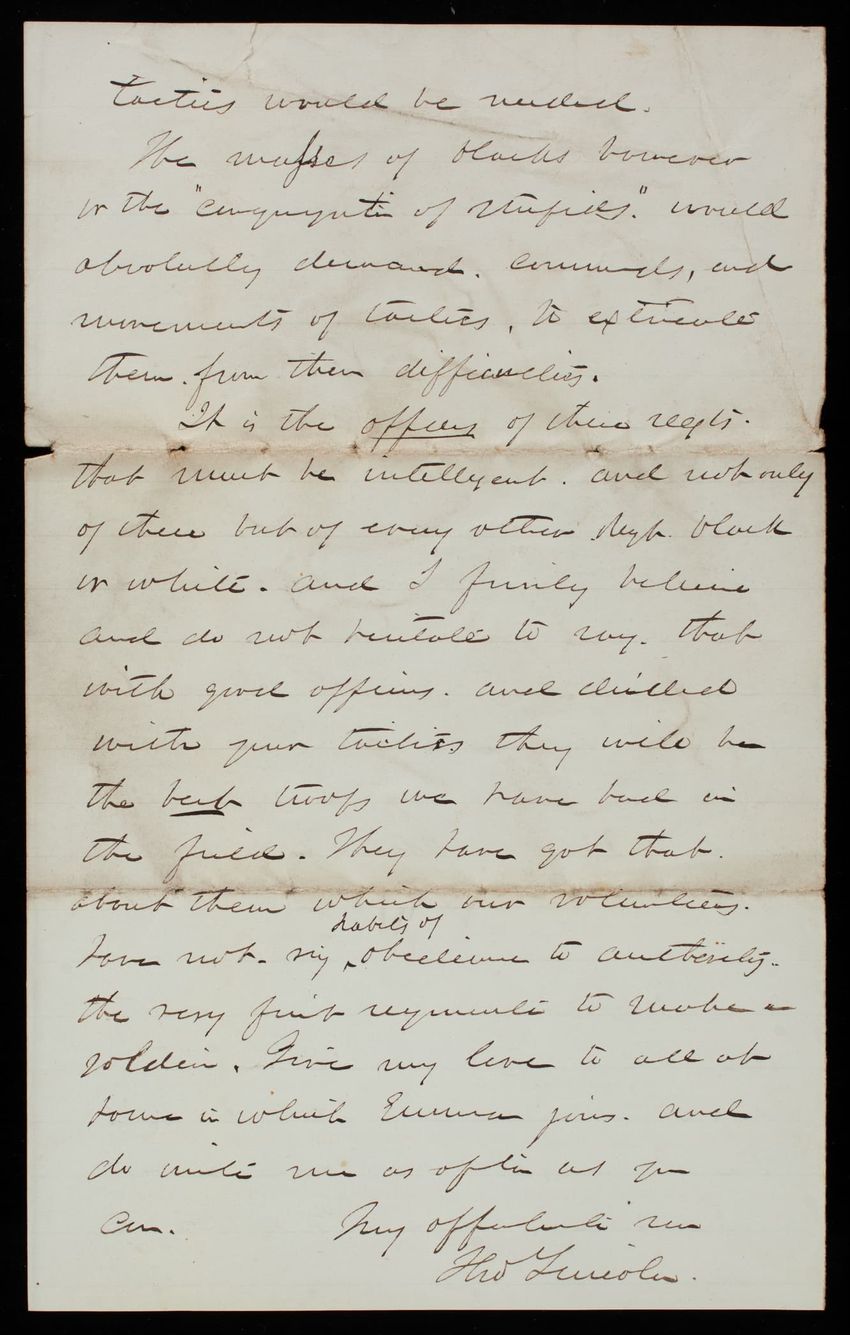 tactics would be needed.
The masses of blacks however
or the "congregation of stupids." would
absolutely demand. commands, and
movements of tactics, to extricate
them. from their difficulties.
It is the officers of these regts.
that must be intelligent. and not only
of these but of every other Regt. black
or white. and I firmly believe
and do not hesitate to say. that
with good officers. and drilled
with your tactics they will be
the best troops we have had in
the field. They have got that.
about them which our volunteers.
habits of
have not. viz ‸ obedience to authority.
the very first requisite to make a
soldier. Give my love to all at
home in which Emma joins. and
do write me as often as you
can. Very affectionate son
Lincoln.